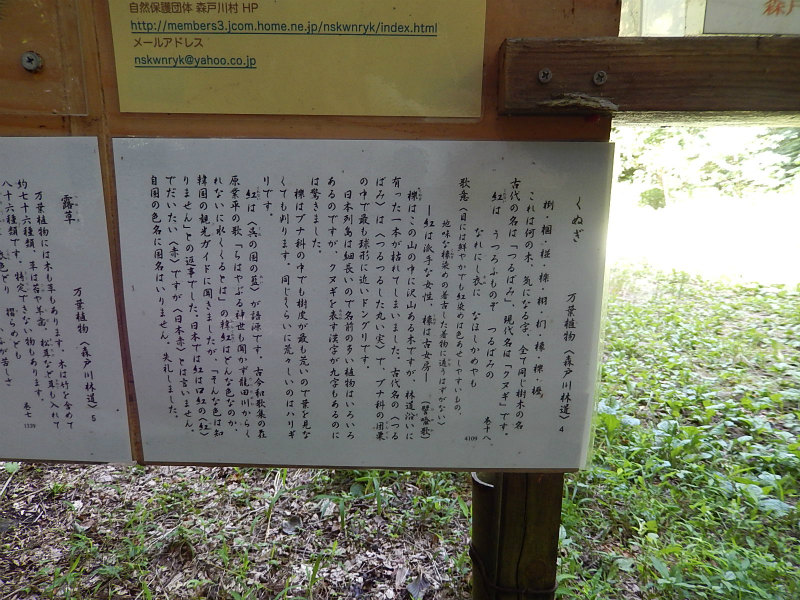 自然保護団体 森戸川村 HP
http://members3.jcom.home.ne.jp/nskwnryk/index.html
メールアドレス
nskwnryk@yahoo.co.jp
森戸
くぬぎ 万葉植物〈森戸川林道〉4
これは何の木、気になる字、全て同じ樹木の名
古代の名は「つるばみ」、現代名は「クヌギ」です。
紅は うつろふものぞ つるばみの
なれにし衣に なほしかめやも
巻十八 4109
歌意〈目には鮮やかでも紅染めは色あせしやすいもの、
地味な橡染めの着古した着物に適うはずがない〉
―紅は派手な女性、橡は古女房― (譬喩歌)
櫟はこの山の中に沢山ある木ですが、林道沿いに
有った一本が枯れてしまいました。古代名の〈つる
ばみ〉は〈つるつるした丸い実〉で、ブナ科の団栗
の中で最も球形に近いドングリです。
日本列島は細長いので名前の多い植物はいろいろ
あるのですが、クヌギを表す漢字が九字もあるのに
は驚きました。
櫟はブナ科の中でも樹皮が最も荒いので葉を見な
くても判ります。同じくらいに荒々しいのはハリギ
リです。
紅は〈呉の国の藍〉が語源です。古今和歌集の在
原業平の歌「ちはやぶる神世も聞かず龍田川からく
れないに水くくるとは」の韓紅はどんな色なのか、
韓国の観光ガイドに聞きましたが、「そんな色は知
りません」との返事でした。日本では紅は口紅の〈紅〉
でだいたい〈赤〉ですが〈日本赤〉とは言いません。
自国の色名に国名はいりません。失礼しました。
露草 万葉植物〈森戸川林道〉5
万葉植物には木も草もあります。木は竹を含めて
約七十六種類、草は苔や羊歯、松茸なども入れて
八十六種類です。特定できない物もあります。
巻七 1339
色どり 摺らめども